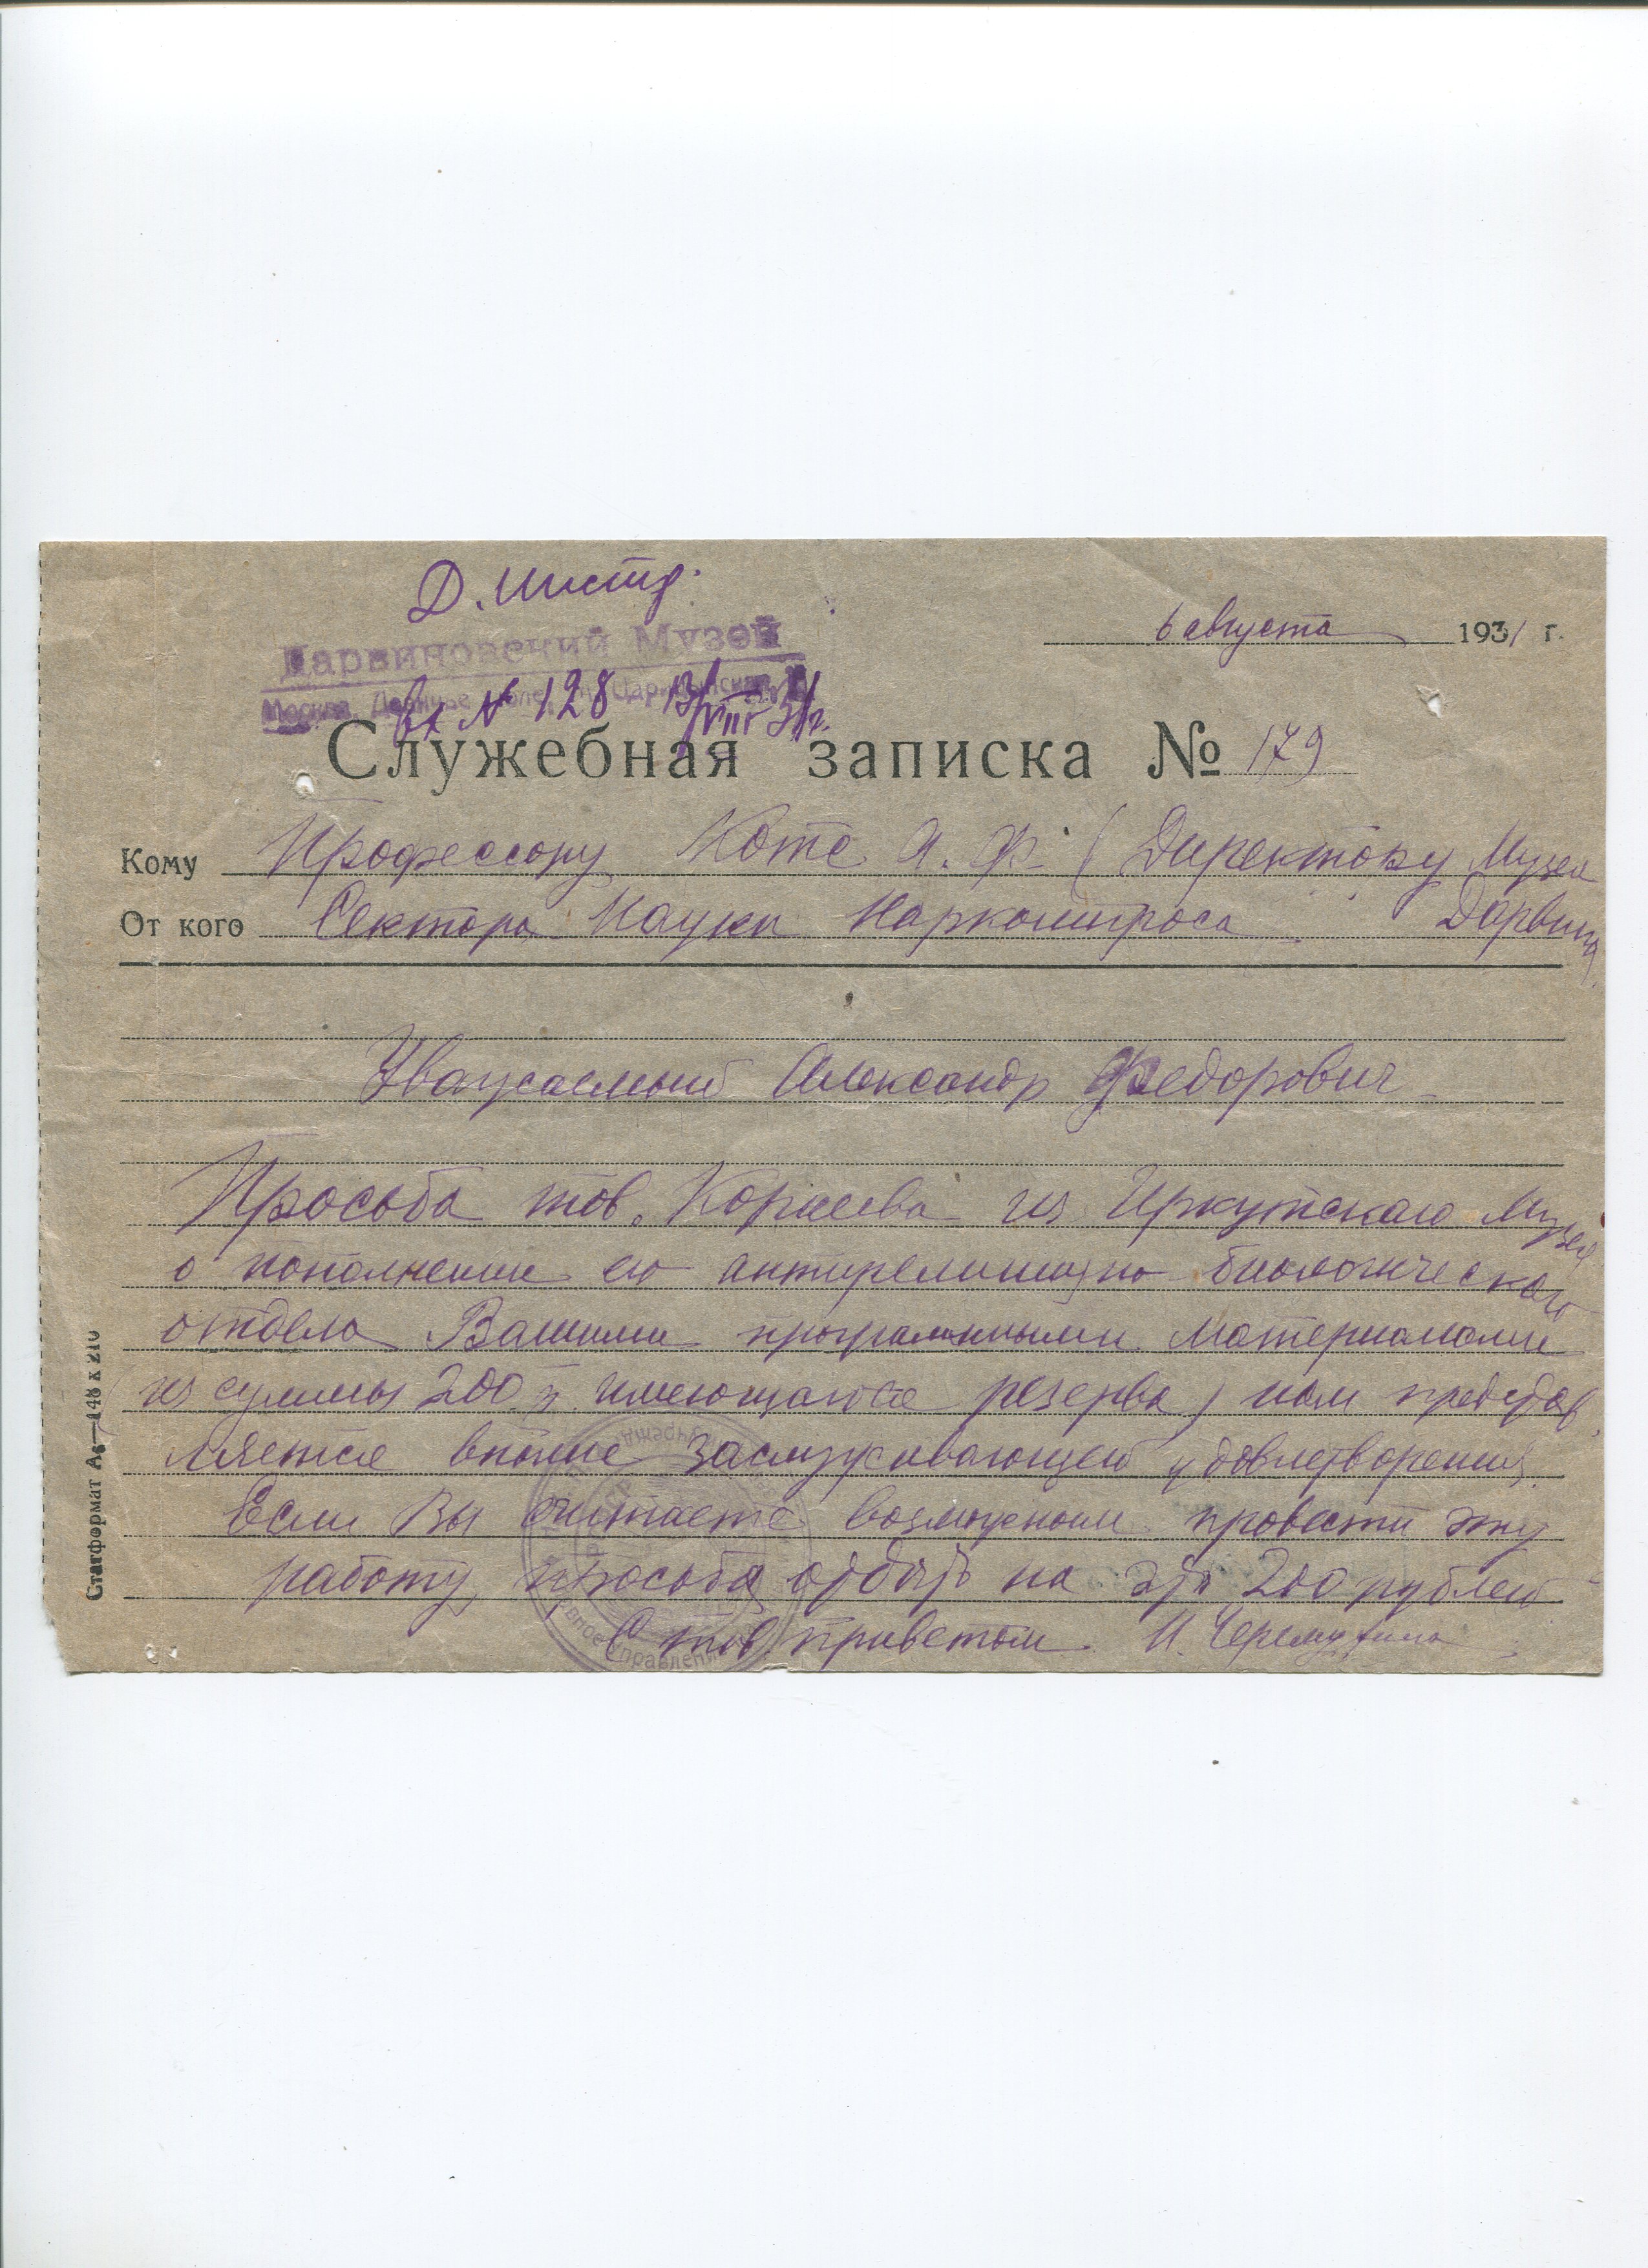 Д. Инстр.
6 августа 1931 г.
Дарвиновский Музей
Москва, Девичье поле, Царицынская
Вх № 128 13/VIII 31 г.
Служебная записка № 179
Кому Профессору Котс А. Ф. (Директору Музея
От кого Сектора Науки Наркомпроса Дарвина)
Уважаемый Александр Федорович
Просьба тов. Корнеева из Иркутскаго Музея
о пополнении его антирелигиозно биологическаго
отдела Вашими программными материалами
(из суммы 200 р. имеющагося резерва) нам представ
ляется вполне заслуживающей удовлетворения.
Если Вы считаете возможным провести эту
работу, просьба отобрать на эти 200 рублей
С тов. приветом И. Черемухина
Статформат А5—148 x 210
управление